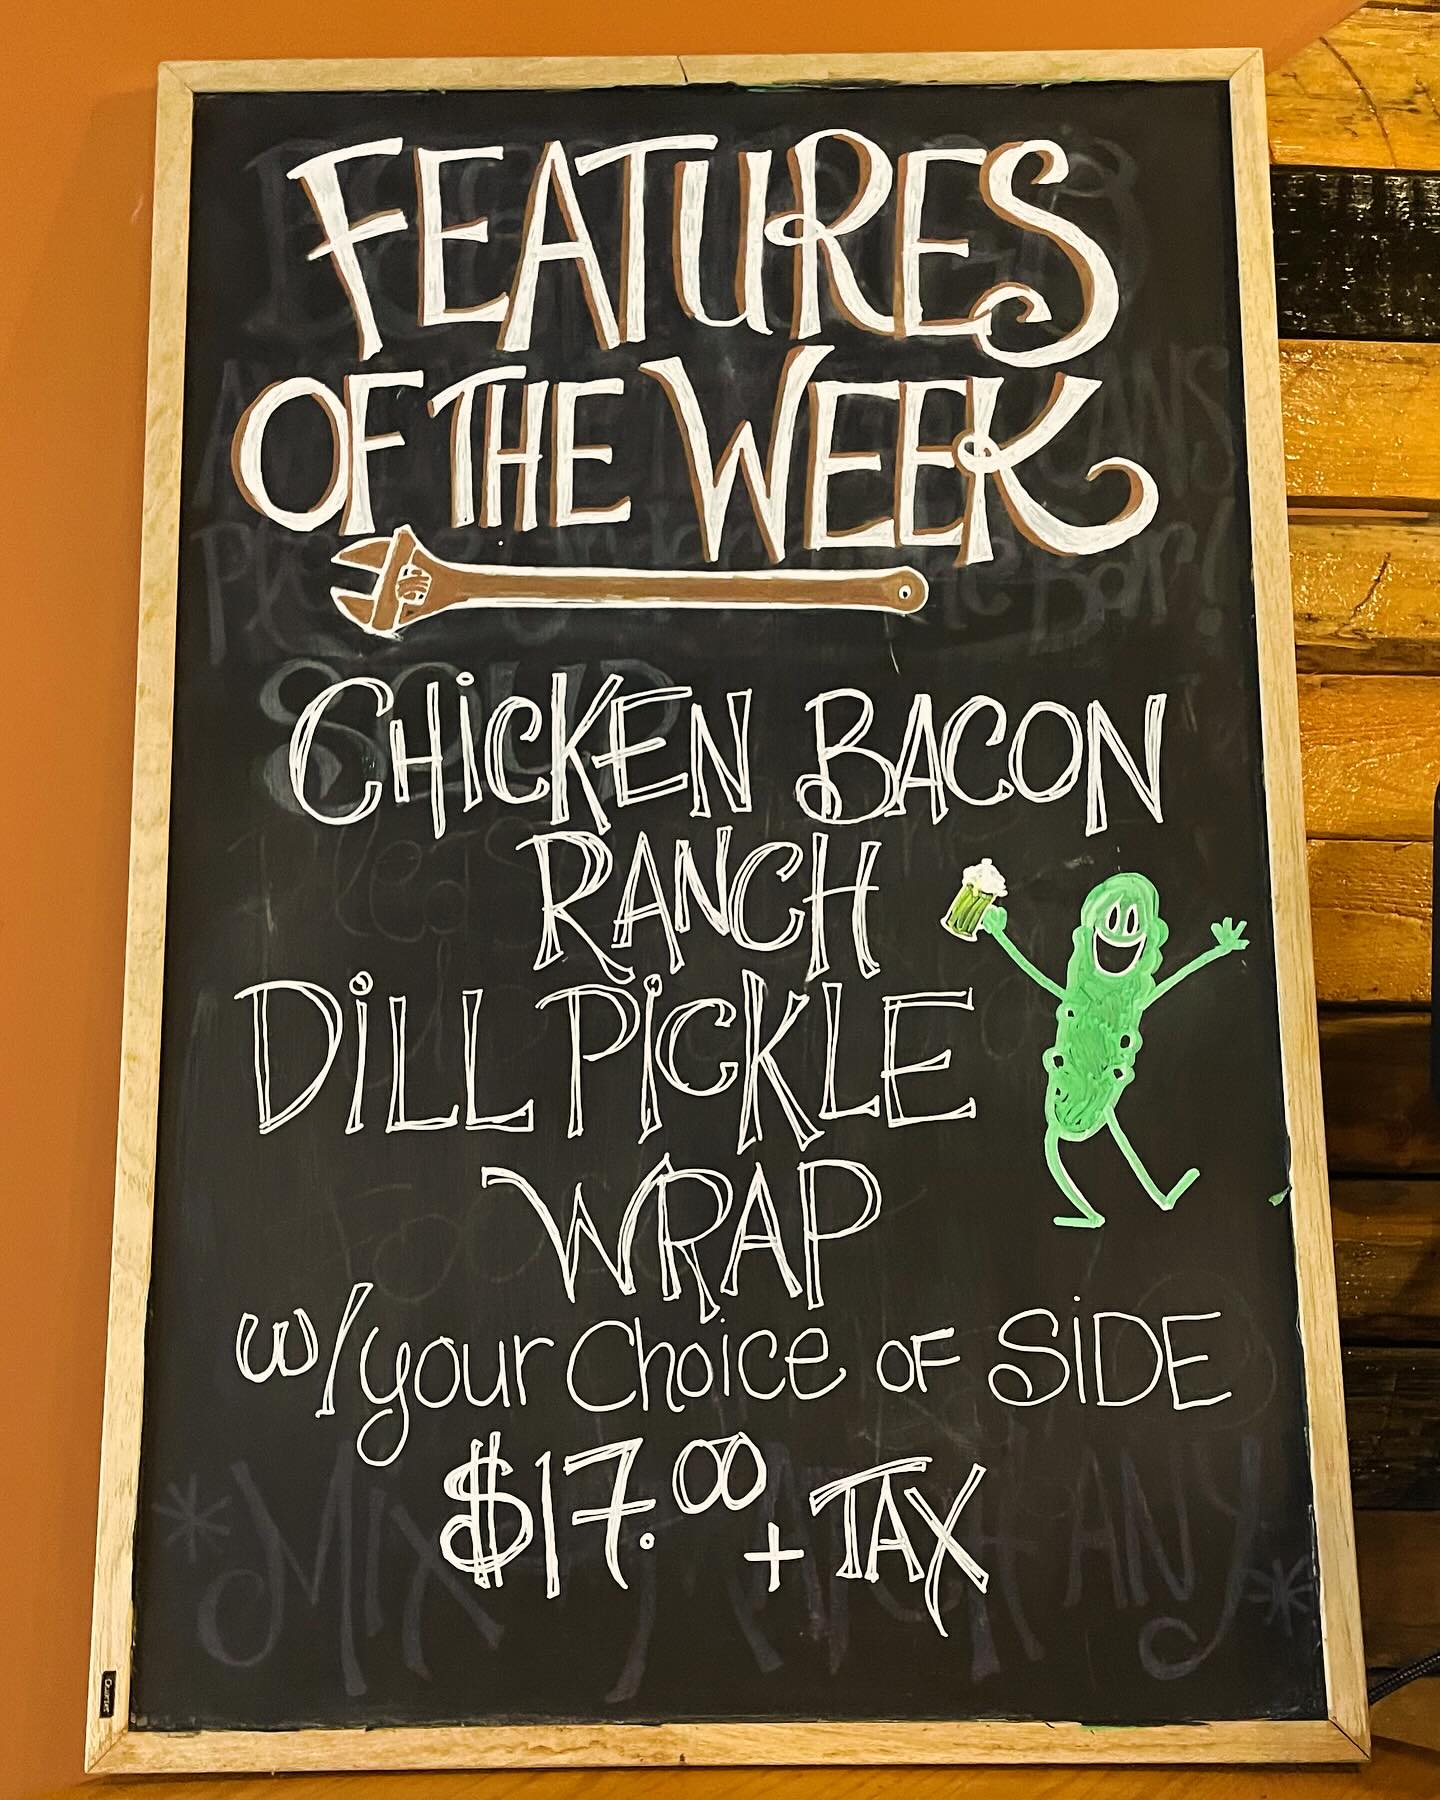 FEATURES
OF THE WEEK
CHiCKEN BACON
RANCH
DiLL PiCKLE
WRAP
w/your Choice OF SiDE
$17.00 + TAX
Quartet